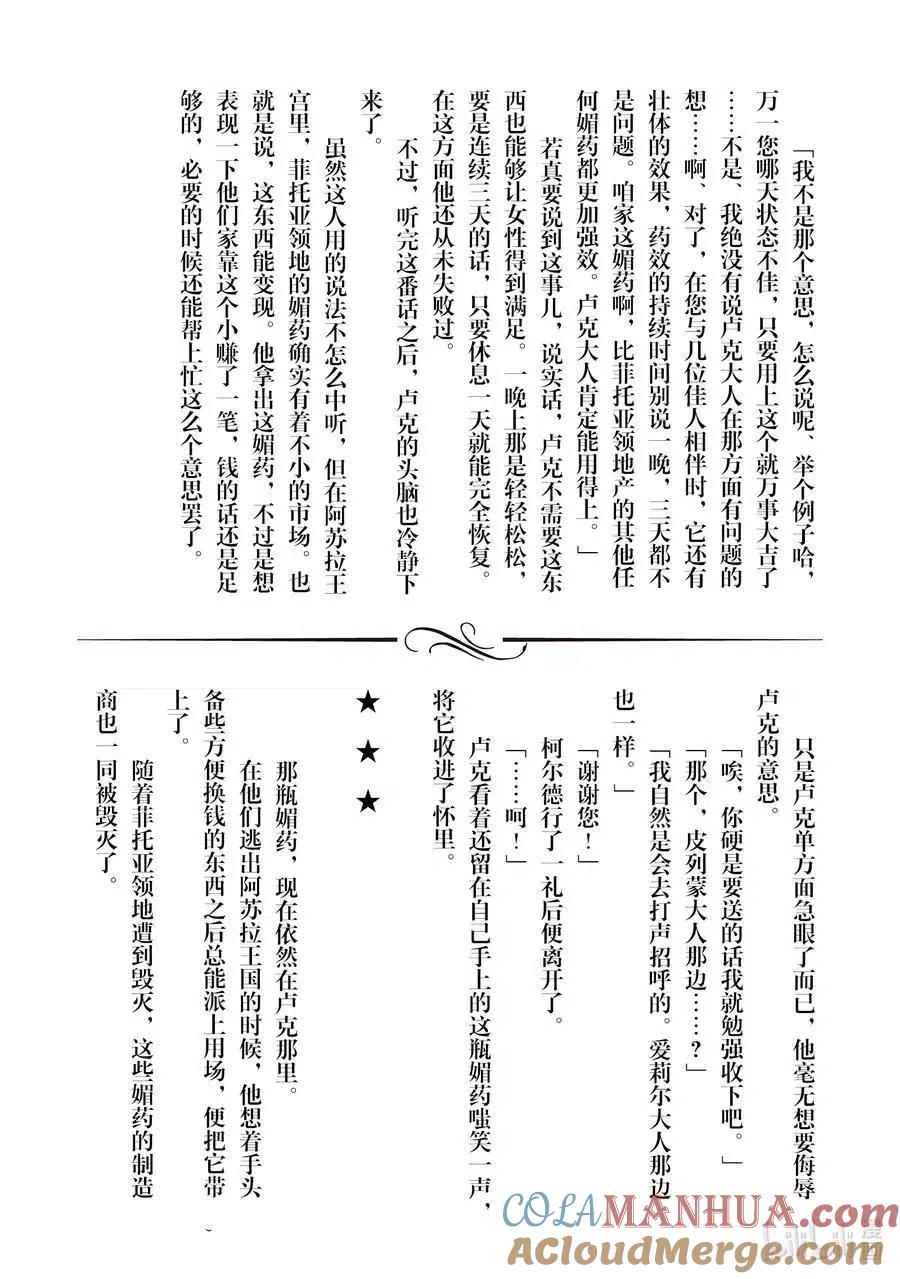 「我不是那个意思，怎么说呢、举个例子哈，
万一您哪天状态不佳，只要用上这个就万事大吉了
……不是、我绝没有说卢克大人在那方面有问题的
想……啊、对了，在您与几位佳人相伴时，它还有
壮体的效果，药效的持续时间别说一晚，三天都不
是问题。咱家这媚药啊，比菲托亚领地产的其他任
何媚药都更加强效。卢克大人肯定能用得上。」
若真要说到这事儿，说实话，卢克不需要这东
西也能够让女性得到满足。一晚上那是轻轻松松，
要是连续三天的话，只要休息一天就能完全恢复。
在这方面他还从未失败过。
不过，听完这番话之后，卢克的头脑也冷静下
来了。
虽然这人用的说法不怎么中听，但在阿苏拉王
宫里，菲托亚领地的媚药确实有着不小的市场。也
就是说，这东西能变现。他拿出这媚药，不过是想
表现一下他们家靠这个小赚了一笔，钱的话还是足
够的，必要的时候还能帮上忙这么个意思罢了。
只是卢克单方面急眼了而已，他毫无想要侮辱
卢克的意思。
「唉，你硬是要送的话我就勉强收下吧。」
「那个，皮列蒙大人那边……？」
「我自然是会去打声招呼的。爱莉尔大人那边
也一样。」
「谢谢您！」
柯尔德行了一礼后便离开了。
「……呵！」
卢克看着还留在自己手上的这瓶媚药嗤笑一声，
将它收进了怀里。
★ ★ ★
那瓶媚药，现在依然在卢克那里。
在他们逃出阿苏拉王国的时候，他想着手头
备些方便换钱的东西之后总能派上用场，便把它带
上了。
随着菲托亚领地遭到毁灭，这些媚药的制造
商也一同被毁灭了。
COLAMANHUA.COM
ACloudMerge.com